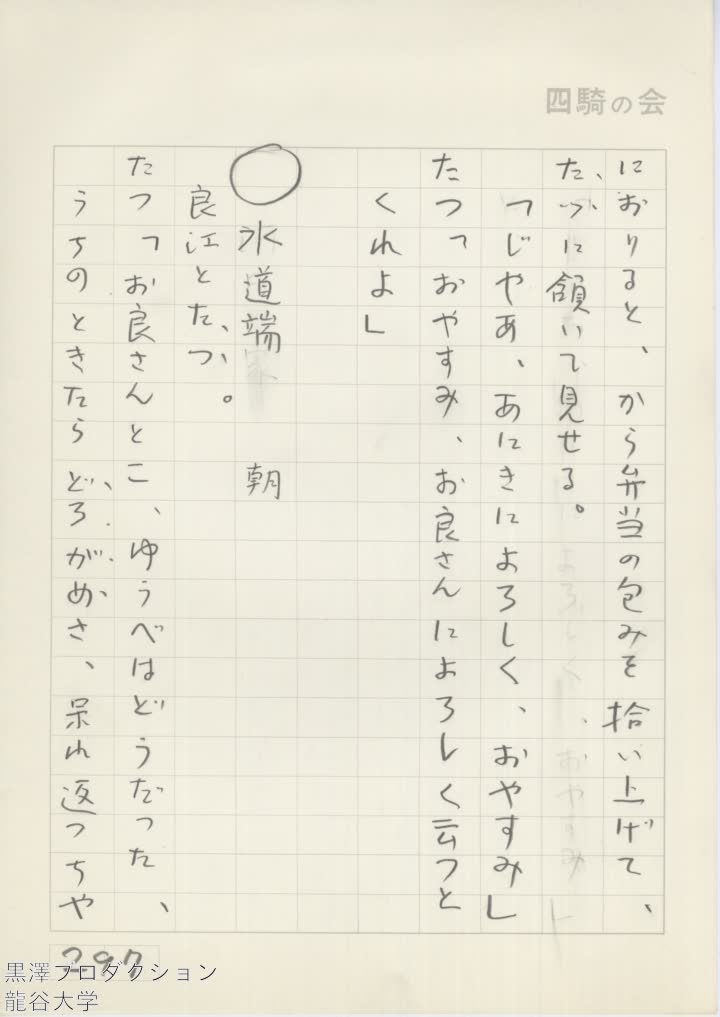 四騎の会
におりると、から弁当の包みを拾い上げて、
たづに頷いて見せる。
「じやあ、あにきによろしく、おやすみ」
たつ「おやすみ、お良さんによろしく云つと
くれよ」
○水道端　朝
良江とたつ。
たつ「お良さんとこ、ゆうべはどうだつた、
うちのときたらどろがめさ、呆れ返つちや
297
黒澤プロダクション
龍谷大学